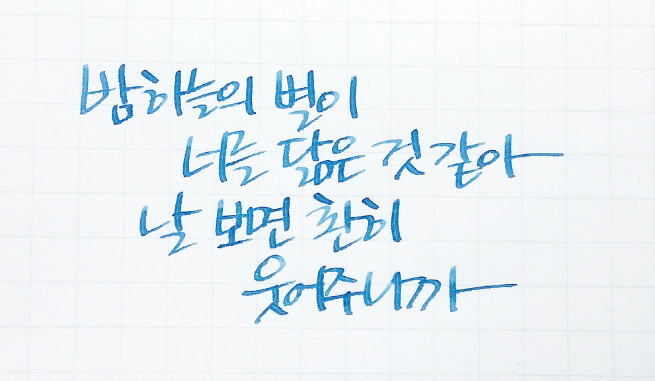 밤하늘의 별이
너를 닮은 것 같아
날 보면 환히
웃어주니까